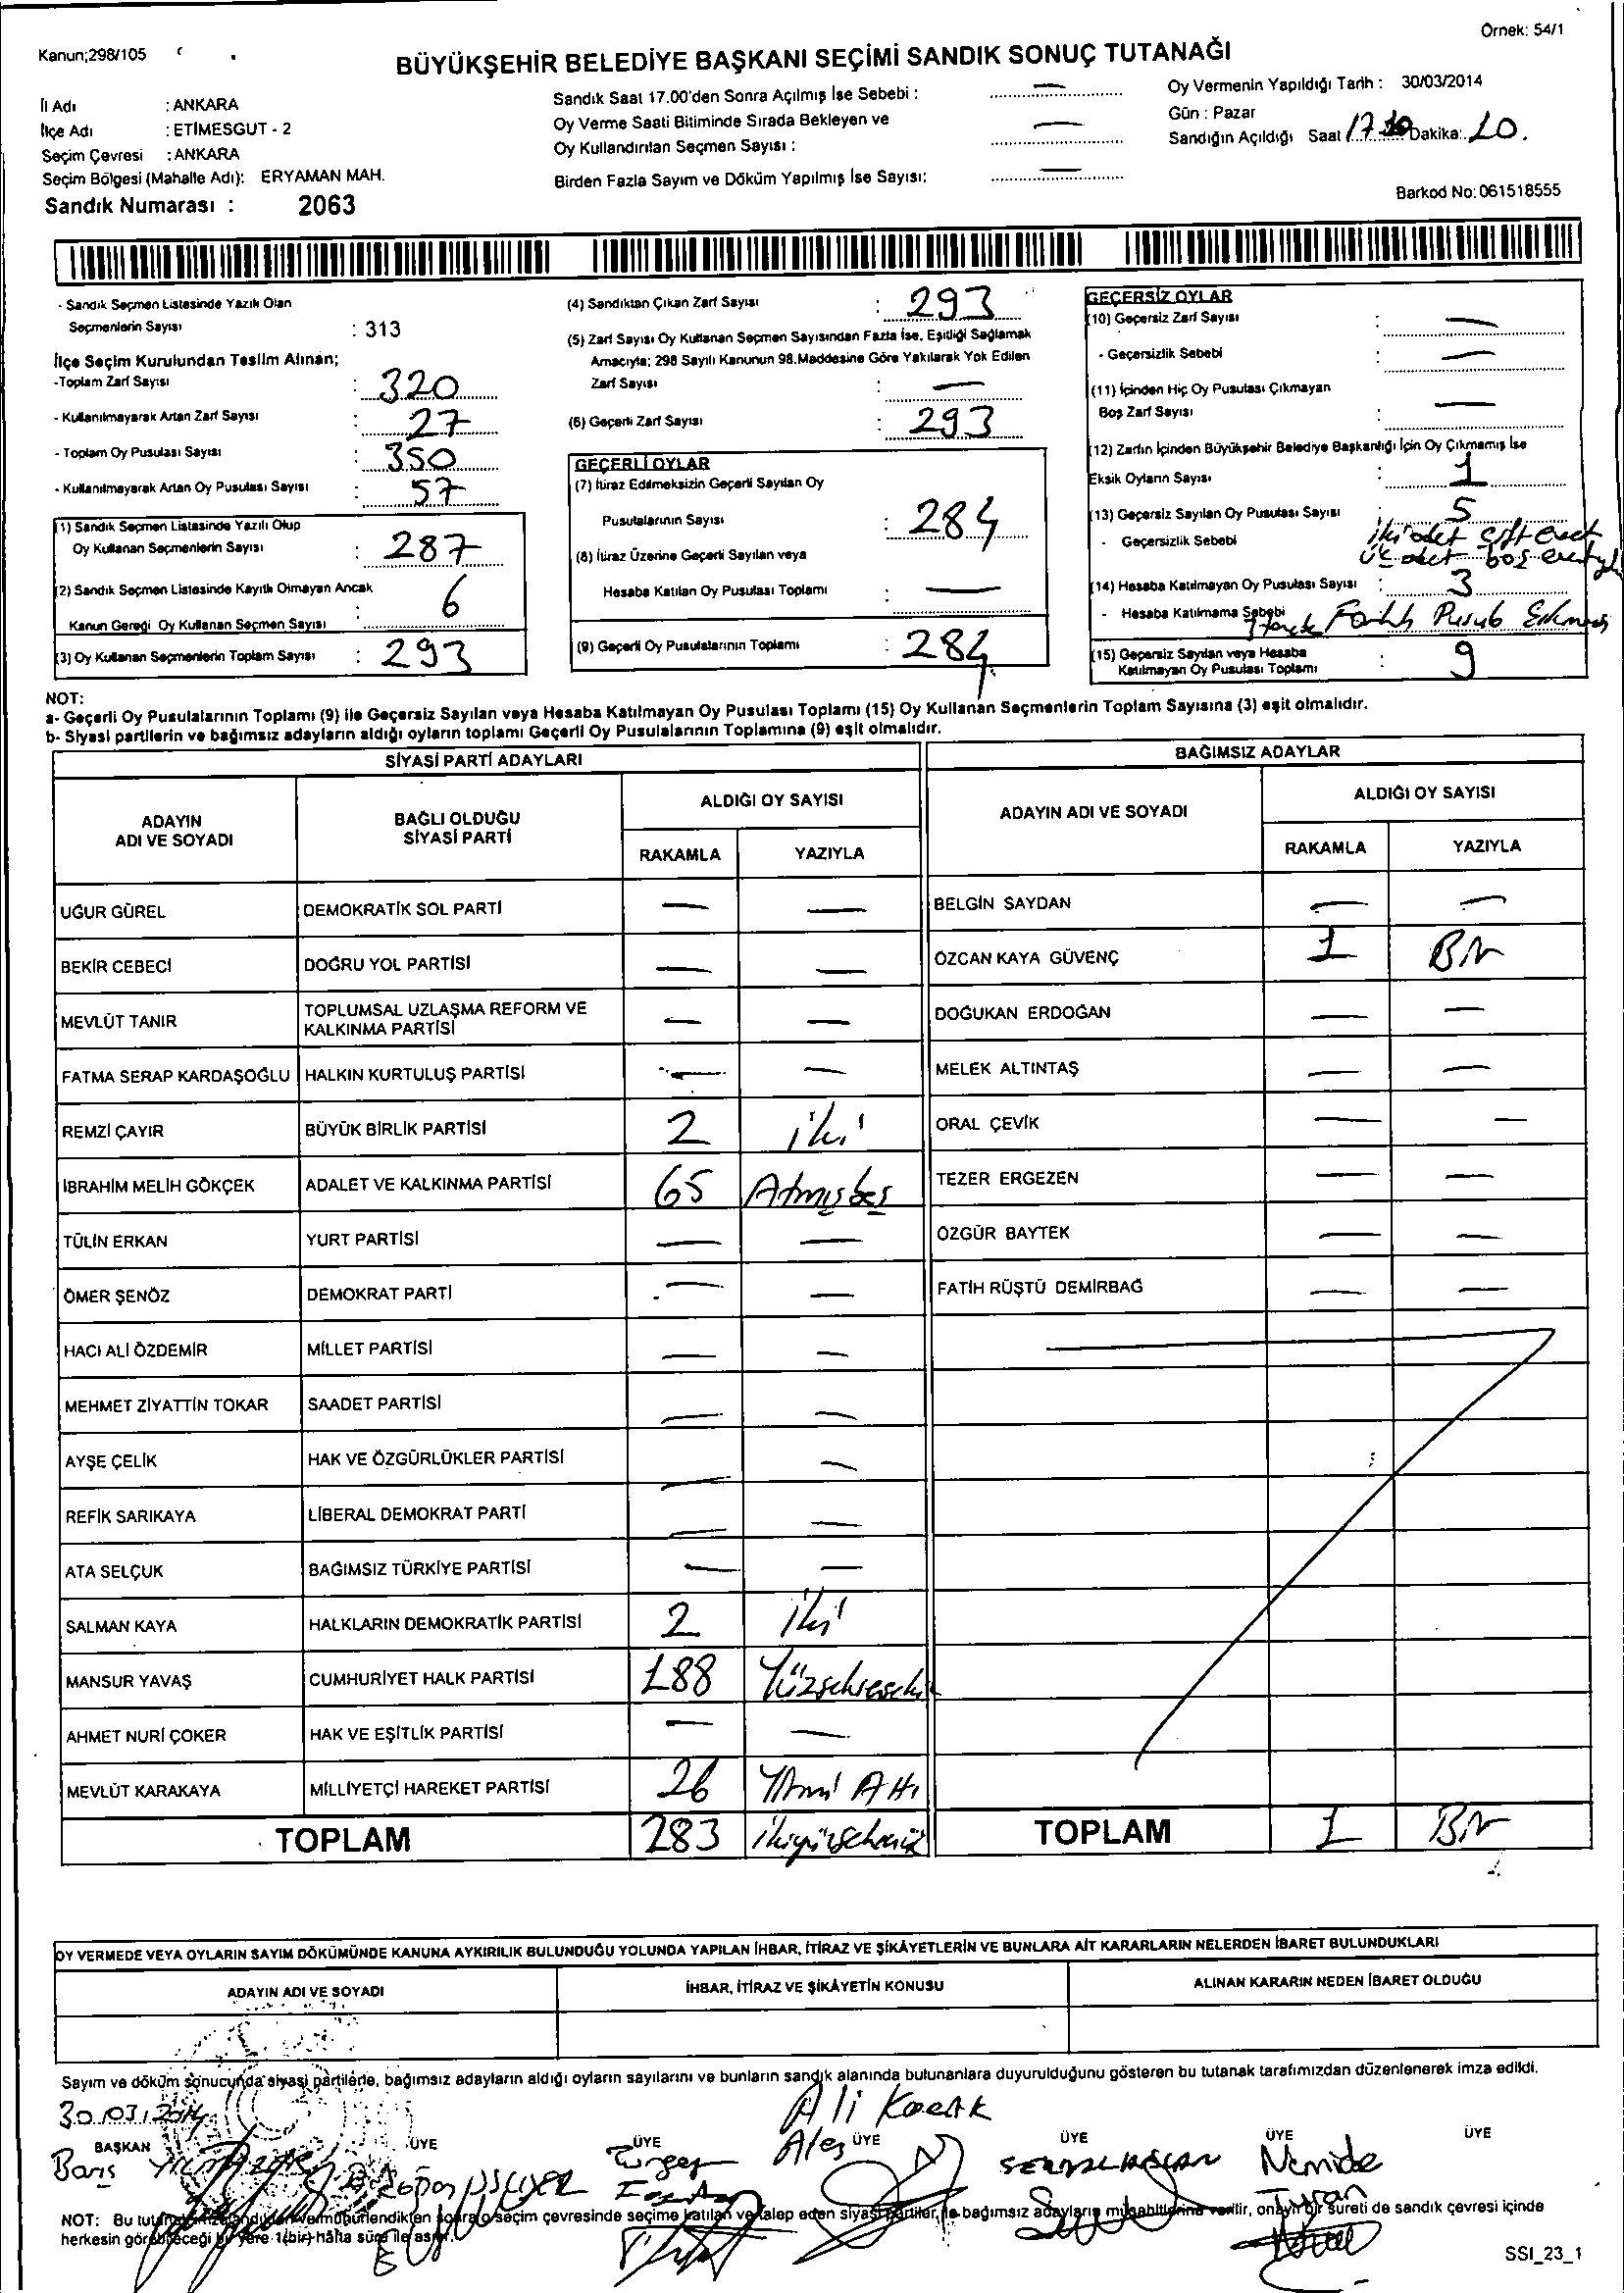 Örnek: 54/1
Kanun;298/105
BÜYÜKŞEHİR BELEDİYE BAŞKANI SEÇİMİ SANDIK SONUÇ TUTANAĞI
İl Adı : ANKARA
İlçe Adı : ETİMESGUT - 2
Seçim Çevresi : ANKARA
Seçim Bölgesi (Mahalle Adı): ERYAMAN MAH.
Sandık Numarası : 2063
Sandık Saat 17.00'den Sonra Açılmış İse Sebebi : —
Oy Verme Saati Bitiminde Sırada Bekleyen ve
Oy Kullandırılan Seçmen Sayısı : —
Birden Fazla Sayım ve Döküm Yapılmış İse Sayısı: —
Oy Vermenin Yapıldığı Tarih : 30/03/2014
Gün : Pazar
Sandığın Açıldığı Saat 17 Dakika: 10.
Barkod No: 061518555
- Sandık Seçmen Listesinde Yazılı Olan
Seçmenlerin Sayısı : 313
İlçe Seçim Kurulundan Teslim Alınan;
-Toplam Zarf Sayısı : 320
- Kullanılmayarak Artan Zarf Sayısı : 27
- Toplam Oy Pusulası Sayısı : 350
- Kullanılmayarak Artan Oy Pusulası Sayısı : 57
(1) Sandık Seçmen Listesinde Yazılı Olup
Oy Kullanan Seçmenlerin Sayısı : 287
(2) Sandık Seçmen Listesinde Kayıtlı Olmayan Ancak
Kanun Gereği Oy Kullanan Seçmen Sayısı : 6
(3) Oy Kullanan Seçmenlerin Toplam Sayısı : 293
(4) Sandıktan Çıkan Zarf Sayısı : 293
(5) Zarf Sayısı Oy Kullanan Seçmen Sayısından Fazla İse, Eşitliği Sağlamak
Amacıyla; 298 Sayılı Kanunun 98.Maddesine Göre Yakılarak Yok Edilen
Zarf Sayısı : —
(6) Geçerli Zarf Sayısı : 293
GEÇERLİ OYLAR
(7) İtiraz Edilmeksizin Geçerli Sayılan Oy
Pusulalarının Sayısı : 284
(8) İtiraz Üzerine Geçerli Sayılan veya
Hesaba Katılan Oy Pusulası Toplamı : —
(9) Geçerli Oy Pusulalarının Toplamı : 284
GEÇERSİZ OYLAR
(10) Geçersiz Zarf Sayısı : —
- Geçersizlik Sebebi —
(11) İçinden Hiç Oy Pusulası Çıkmayan
Boş Zarf Sayısı : —
(12) Zarfın İçinden Büyükşehir Belediye Başkanlığı İçin Oy Çıkmamış İse
Eksik Oyların Sayısı : 1
(13) Geçersiz Sayılan Oy Pusulası Sayısı : 5
- Geçersizlik Sebebi iki adet çift evet
üç adet boş
(14) Hesaba Katılmayan Oy Pusulası Sayısı : 3
- Hesaba Katılmama Sebebi Farklı
(15) Geçersiz Sayılan veya Hesaba
Katılmayan Oy Pusulası Toplamı : 9
NOT:
a- Geçerli Oy Pusulalarının Toplamı (9) ile Geçersiz Sayılan veya Hesaba Katılmayan Oy Pusulası Toplamı (15) Oy Kullanan Seçmenlerin Toplam Sayısına (3) eşit olmalıdır.
b- Siyasi partilerin ve bağımsız adayların aldığı oyların toplamı Geçerli Oy Pusulalarının Toplamına (9) eşit olmalıdır.
SİYASİ PARTİ ADAYLARI
ADAYIN ADI VE SOYADI BAĞLI OLDUĞU SİYASİ PARTİ ALDIĞI OY SAYISI
RAKAMLA YAZIYLA
UĞUR GÜREL DEMOKRATİK SOL PARTİ — —
BEKİR CEBECİ DOĞRU YOL PARTİSİ — —
MEVLÜT TANIR TOPLUMSAL UZLAŞMA REFORM VE KALKINMA PARTİSİ — —
FATMA SERAP KARDAŞOĞLU HALKIN KURTULUŞ PARTİSİ — —
REMZİ ÇAYIR BÜYÜK BİRLİK PARTİSİ 2 iki
İBRAHİM MELİH GÖKÇEK ADALET VE KALKINMA PARTİSİ 65 Atmışbeş
TÜLİN ERKAN YURT PARTİSİ — —
ÖMER ŞENÖZ DEMOKRAT PARTİ — —
HACI ALİ ÖZDEMİR MİLLET PARTİSİ — —
MEHMET ZİYATTİN TOKAR SAADET PARTİSİ — —
AYŞE ÇELİK HAK VE ÖZGÜRLÜKLER PARTİSİ — —
REFİK SARIKAYA LİBERAL DEMOKRAT PARTİ — —
ATA SELÇUK BAĞIMSIZ TÜRKİYE PARTİSİ — —
SALMAN KAYA HALKLARIN DEMOKRATİK PARTİSİ 2 iki
MANSUR YAVAŞ CUMHURİYET HALK PARTİSİ 188 Yüzseksensekiz
AHMET NURİ ÇOKER HAK VE EŞİTLİK PARTİSİ — —
MEVLÜT KARAKAYA MİLLİYETÇİ HAREKET PARTİSİ 26 Yirmi Altı
TOPLAM 283 ikiyüzseksenüç
BAĞIMSIZ ADAYLAR
ADAYIN ADI VE SOYADI ALDIĞI OY SAYISI
RAKAMLA YAZIYLA
BELGİN SAYDAN — —
ÖZCAN KAYA GÜVENÇ 1 Bir
DOĞUKAN ERDOĞAN — —
MELEK ALTINTAŞ — —
ORAL ÇEVİK — —
TEZER ERGEZEN — —
ÖZGÜR BAYTEK — —
FATİH RÜŞTÜ DEMİRBAĞ — —
TOPLAM 1 Bir
OY VERMEDE VEYA OYLARIN SAYIM DÖKÜMÜNDE KANUNA AYKIRILIK BULUNDUĞU YOLUNDA YAPILAN İHBAR, İTİRAZ VE ŞİKÂYETLERİN VE BUNLARA AİT KARARLARIN NELERDEN İBARET BULUNDUKLARI
ADAYIN ADI VE SOYADI İHBAR, İTİRAZ VE ŞİKÂYETİN KONUSU ALINAN KARARIN NEDEN İBARET OLDUĞU
Sayım ve döküm sonucunda siyasi partilerle, bağımsız adayların aldığı oyların sayılarını ve bunların sandık alanında bulunanlara duyurulduğunu gösteren bu tutanak tarafımızdan düzenlenerek imza edildi.
30.03.2014
Ali
BAŞKAN ÜYE ÜYE ÜYE ÜYE ÜYE ÜYE
Barış
NOT: Bu seçim çevresinde seçime katılan ve talep eden siyasi partiler ile bağımsız adayların müşahitlerine verilir, onaylı bir sureti de sandık çevresi içinde
herkesin görebileceği bir yere 1(bir) hafta süre ile asılır.
SSI_23_1